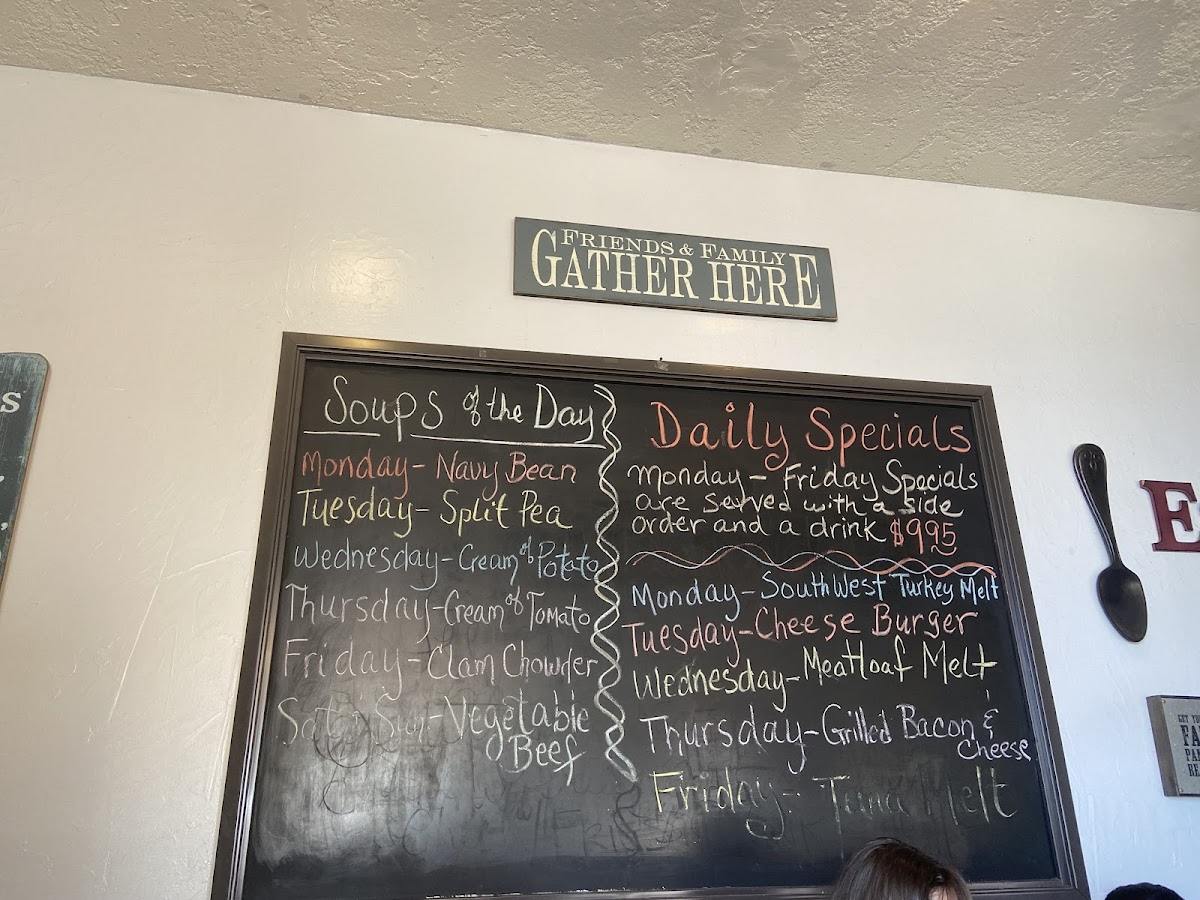 FRIENDS & FAMILY
GATHER HERE
Soups of the Day
Monday - Navy Bean
Tuesday - Split Pea
Wednesday - Cream of Potato
Thursday - Cream of Tomato
Friday - Clam Chowder
Sat & Sun - Vegetable
Beef
Daily Specials
Monday - Friday Specials
are served with a side
order and a drink $9.95
Monday - SouthWest Turkey Melt
Tuesday - Cheese Burger
Wednesday - Meatloaf Melt
Thursday - Grilled Bacon &
Cheese
Friday - Tuna Melt
S
E